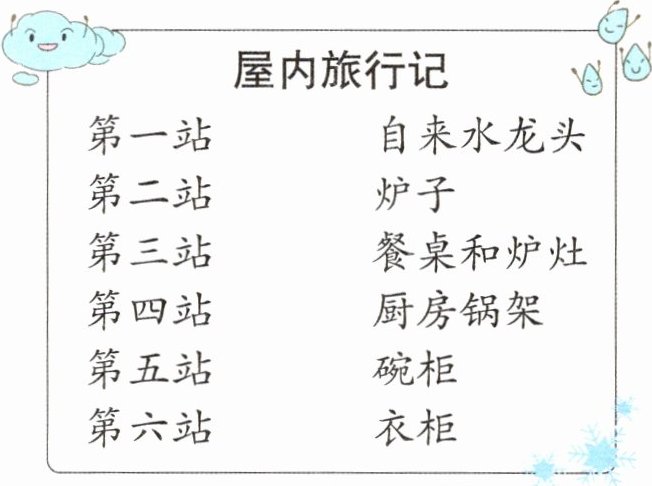 屋内旅行记
第一站 自来水龙头
第二站 炉子
第三站 餐桌和炉灶
第四站 厨房锅架
第五站 碗柜
第六站 衣柜